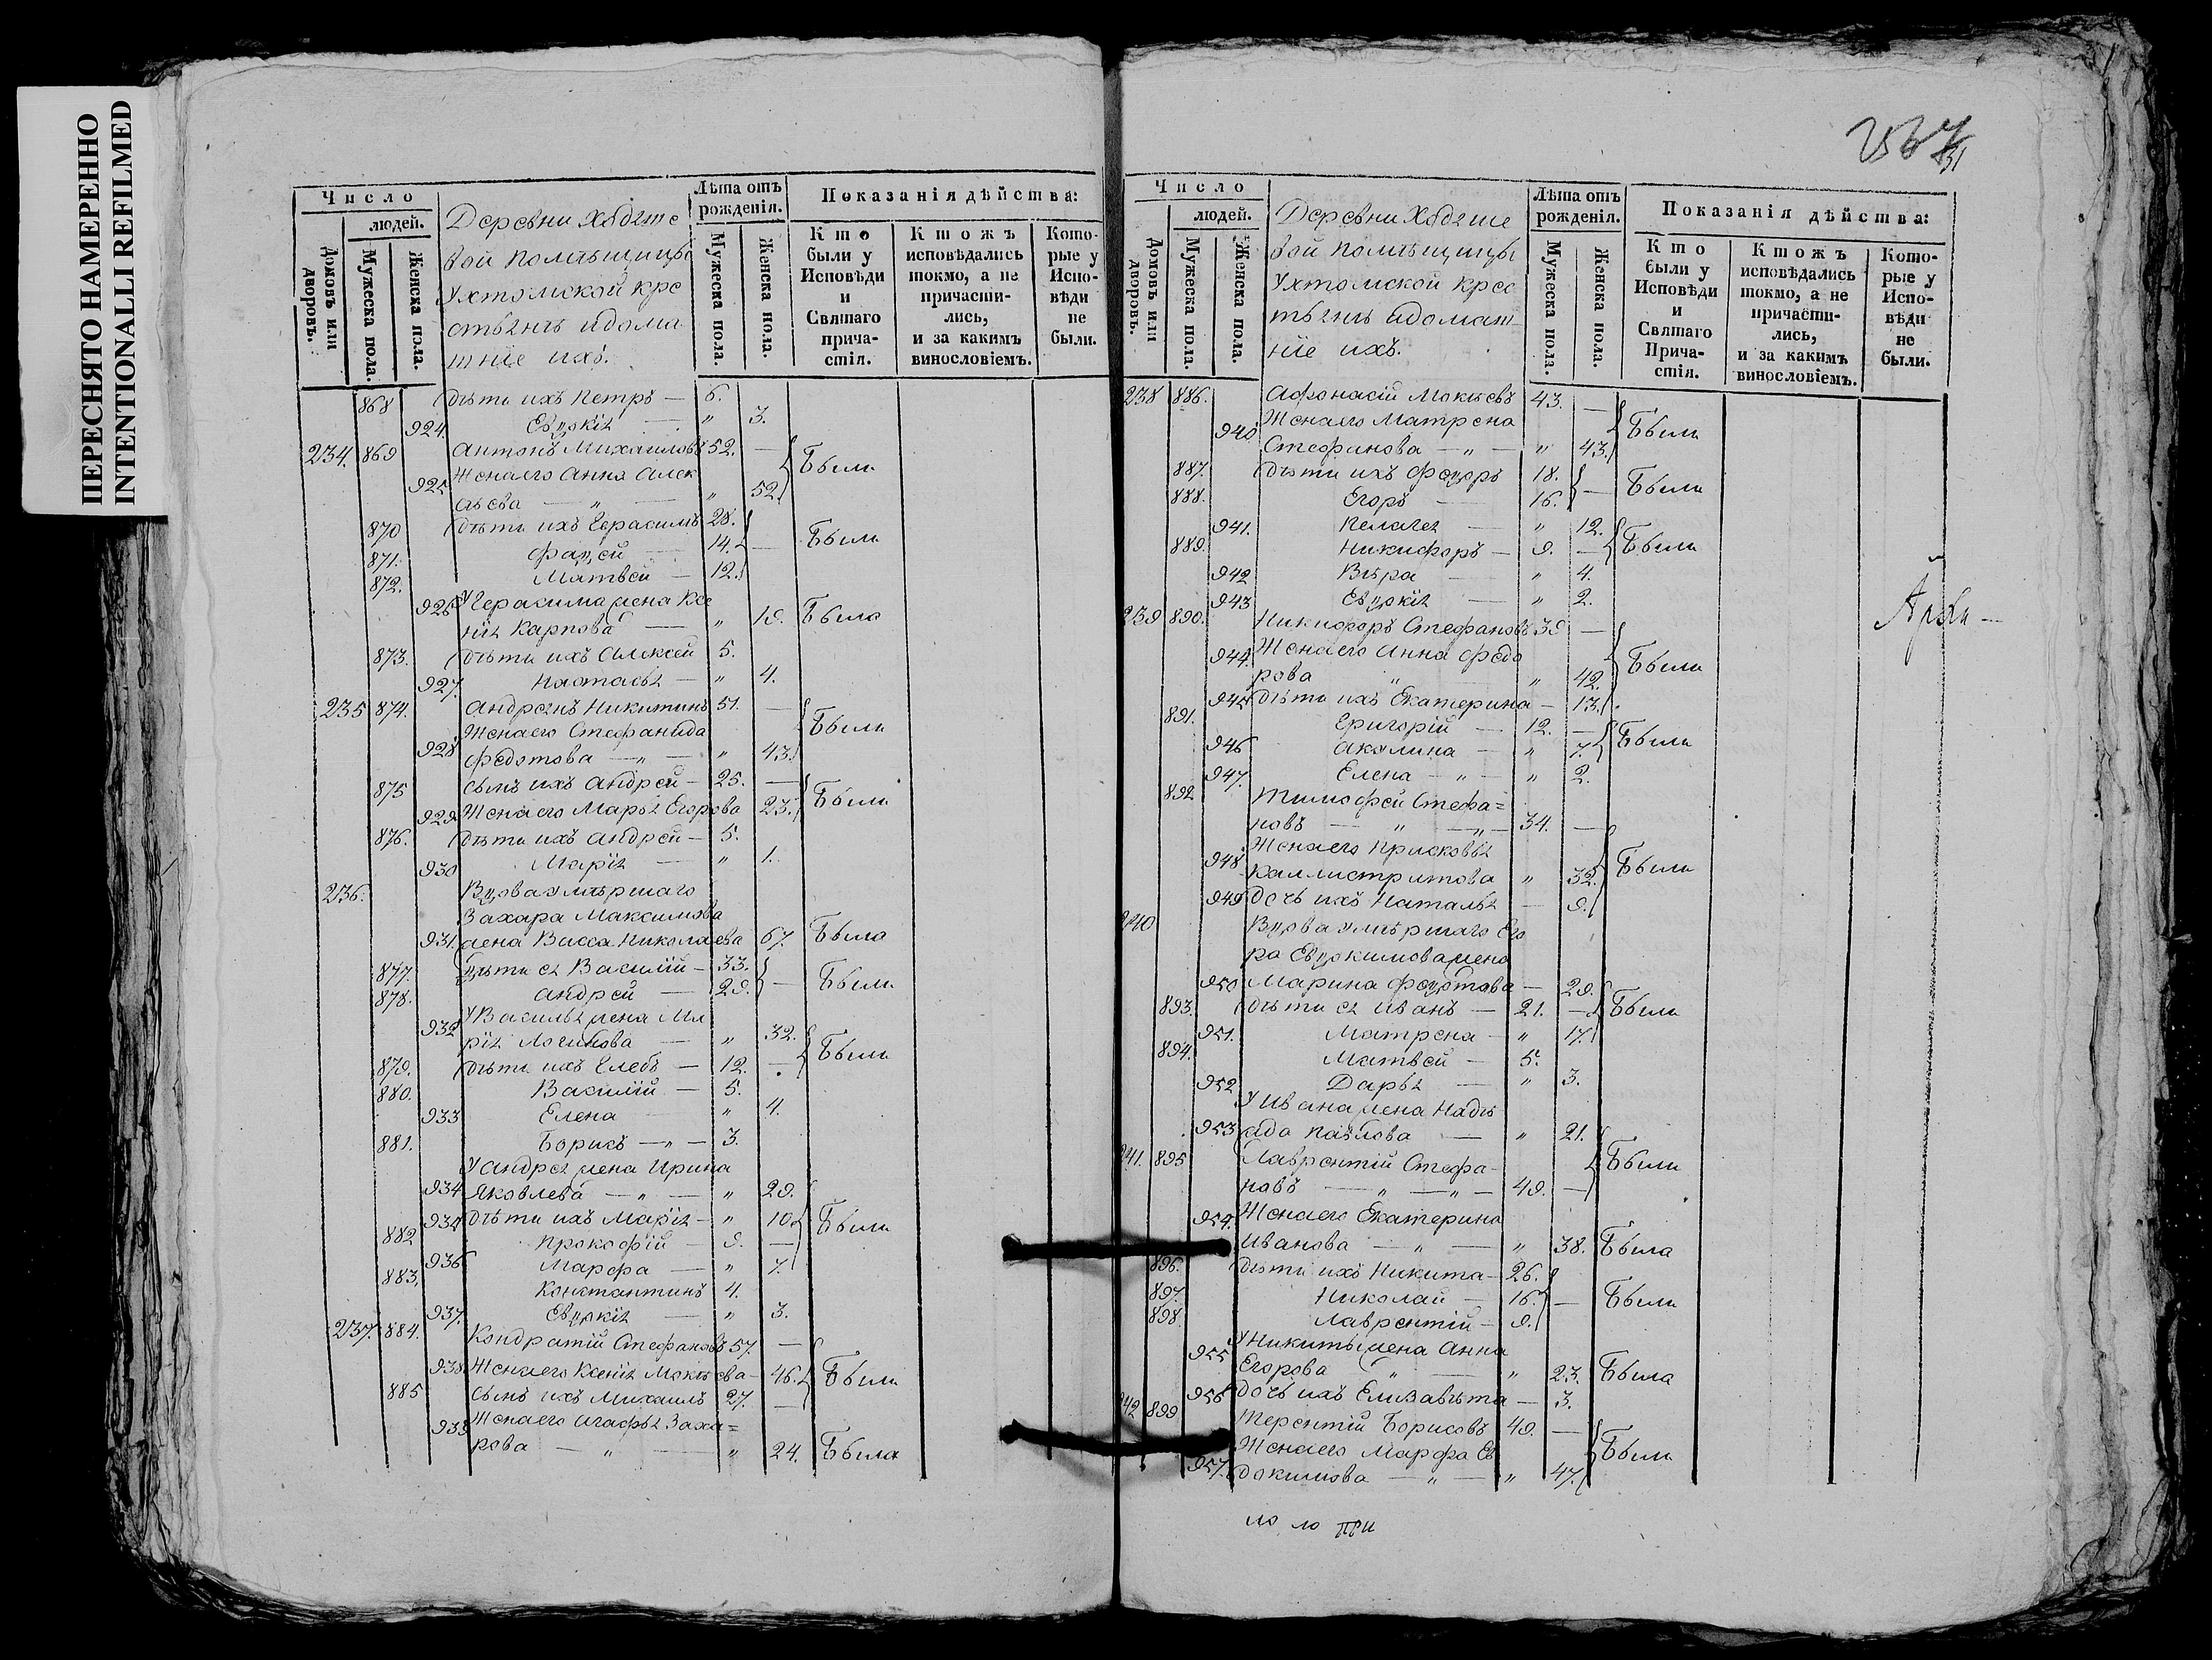 ПЕРЕСНЯТО НАМЕРЕННО
INTENTIONALLI REFILMED
Число
людей.
Домовъ или дворовъ.
Мужеска пола.
Женска пола.
Деревни Хадяте
вой помѣщицы
Ухтомской кре
стьянъ идома
шніе ихъ.
Лѣта отъ рожденія.
Мужеска пола.
Женска пола.
Показанія дѣйства:
Кто были у Исповѣди и Святаго причастія.
Ктожъ исповѣдались токмо, а не причастились, и за какимъ винословіемъ.
Которые у Исповѣди не были.
868 дѣти ихъ Петръ — 6.
924. Евдокія — „ 3.
234. 869 Антонъ Михаиловъ 52. —
Жена его Анна Алек
925 сѣева — „ — „ 52. Были
870 дѣти ихъ Герасимъ 28.
871. Фадей — 14. — Были
872. Матвей — 12.
926 У Герасима жена Ксе
нія Карпова — „ 19. Была
873. дѣти ихъ Алексей 5.
927. Наталья — „ 4.
235 874. Андреянъ Никитинъ 51. —
Жена его Стефанида
928 Федотова — „ — „ 43. Были
875 сынъ ихъ Андрей — 25. —
929. Жена его Марья Егорова 23. Были
876. дѣти ихъ Андрей — 5.
930 Марія — „ 1.
236. Вдова умѣршаго
Захара Максимова
931. жена Васса Николаева 67. Была
877. дѣти ея Василій — 33.
878. Андрей — 29. — Были
У Василья жена Ма
932 рія Логинова — „ 32.
879. дѣти ихъ Глебъ — 12. — Были
880. Василій — 5.
933 Елена „ 4.
881. Борисъ — „ — 3.
У Андрея жена Ирина
934 Яковлева — „ — „ 29.
934 дѣти ихъ Марія — „ 10. Были
882 Прокофій — 9. —
936 Марфа — „ 7.
883. Константинъ 4.
937. Евдокія — „ 3.
237. 884. Кондратій Стефановъ 57. —
938. Жена его Ксенія Мокѣева — 46. Были
885 сынъ ихъ Михаилъ 27. —
Жена его Агафья Заха=
939 рова — „ — „ 24. Была
Число
людей.
Домовъ или дворовъ.
Мужеска пола.
Женска пола.
Деревни Хадяте
вой помѣщицы
Ухтомской крес
тьянъ идомаш
ніе ихъ.
Лѣта отъ рожденія.
Мужеска пола.
Женска пола.
Показанія дѣйства:
Кто были у Исповѣди и Святаго Причастія.
Ктожъ исповѣдались токмо, а не причастились, и за какимъ винословіемъ.
Которые у Исповѣди не были.
238 886. Афонасій Мокѣевъ 43. —
Жена его Матрена
940 Стефанова — „ — „ 43. Были
887. дѣти ихъ Федоръ 18.
888. Егоръ — 16. — Были
941. Пелагея — „ 12.
889. Никифоръ — 9. — Были
942 Вѣра — „ 4.
943 Евдокія — „ 2.
239 890. Никифоръ Стефановъ 39 —
Жена его Анна Федо
944. рова „ „ 42. Были
945 дѣти ихъ Екатерина — 13.
891. Григорій — 12. —
946 Акулина — „ 7. Были
947. Елена — „ — „ 2.
892 Тимофей Стефа=
новъ — „ — „ — 34. —
Жена его Прасковья
948 Каллистратова „ 32. Были
949 дочь ихъ Наталья — 9.
240 Вдова умѣршаго Его
ра Евдокимова жена
950 Марина Федотова — 29.
893. дѣти ея Иванъ — 21. — Были
951. Матрена — „ 17.
894. Матвей — 5.
952 Дарья — „ 3.
У Ивана жена Надѣ
953 жда Павлова — „ 21.
241. 895 Лаврентій Стефа- Были
новъ — „ — „ — 49. —
954. Жена его Екатерина
Иванова — „ — „ 38. Была
896. дѣти ихъ Никита — 26.
897. Николай — 16. — Были
898. Лаврентій — 9.
У Никиты жена Анна
955 Егорова „ — „ 23. Была
956 дочь ихъ Елизавѣта — 3.
242 899 Терентій Борисовъ 49. —
Жена его Марфа Ев Были
957. докимова — „ — „ 47.